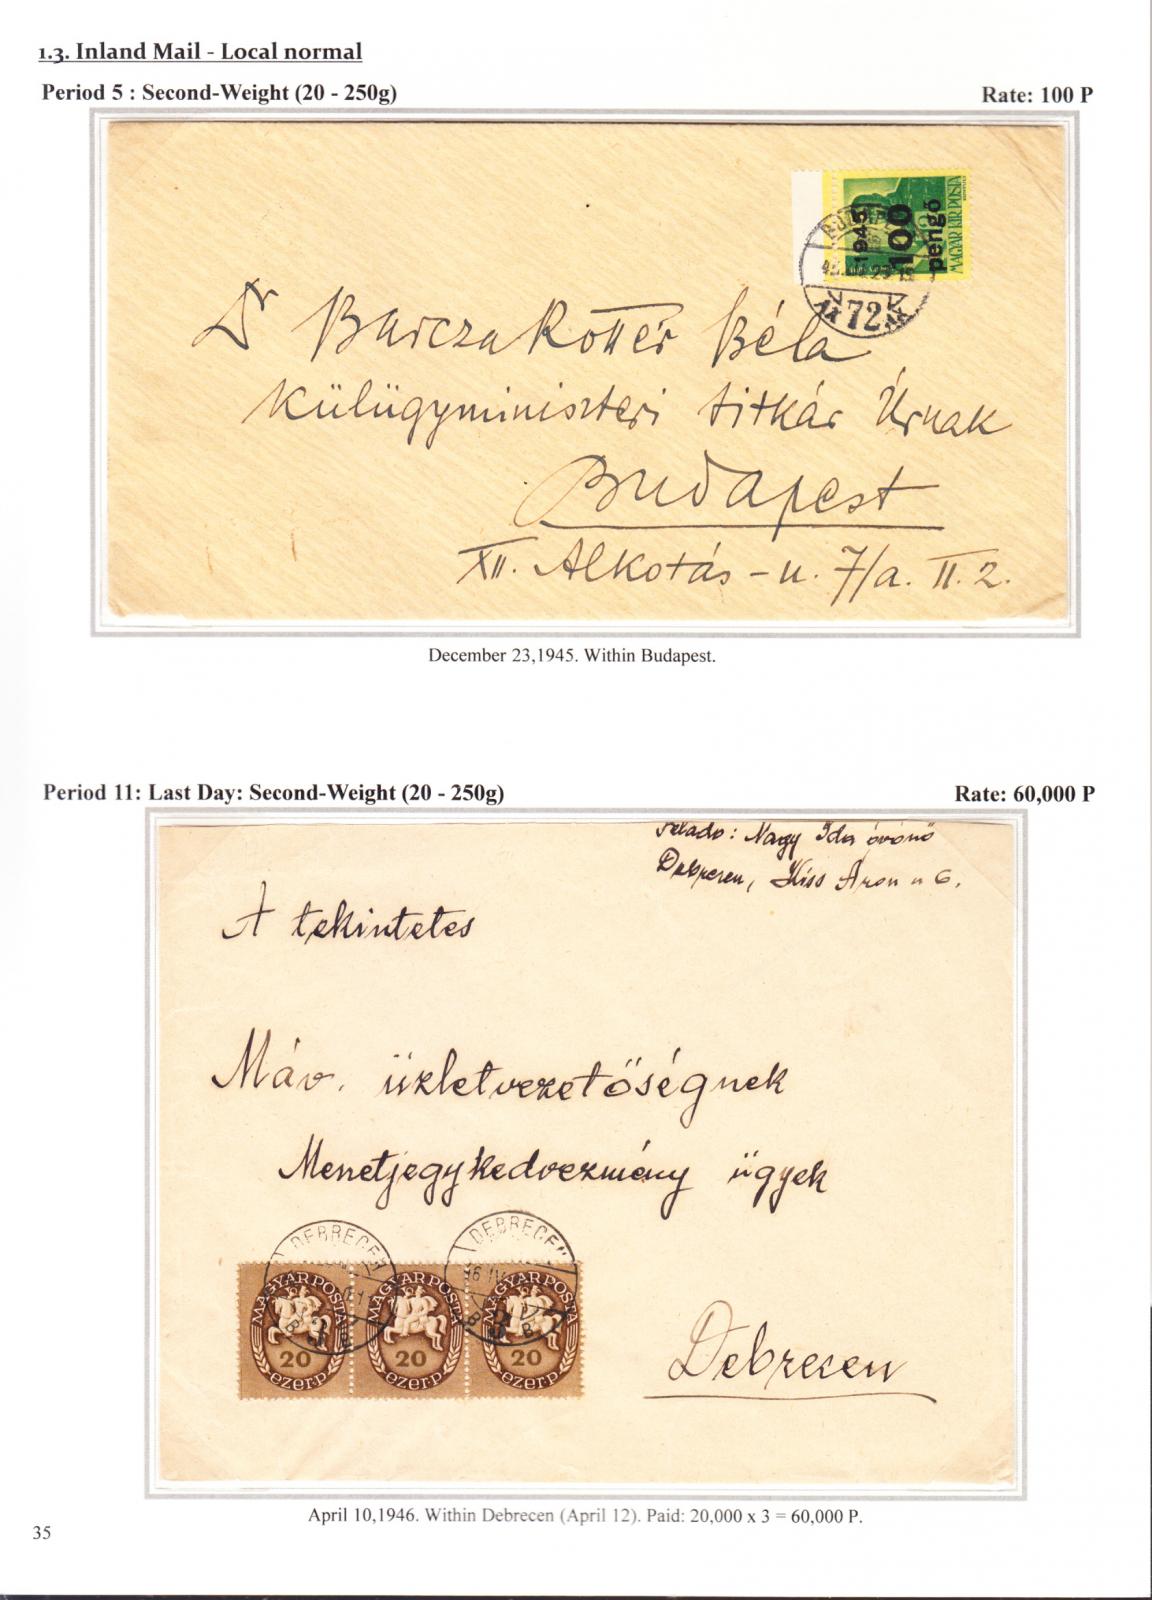 1.3. Inland Mail - Local normal
Period 5 : Second-Weight (20 - 250g)
Rate: 100 P
1945
100
pengő
MAGYAR KIR POSTA
72
Dr Barcza Kottér Béla
Külügyminiszteri titkár Úrnak
Budapest
XII. Alkotás-u. 7/a. II. 2.
December 23,1945. Within Budapest.
Period 11: Last Day: Second-Weight (20 - 250g)
Rate: 60,000 P
Feladó: Nagy Ida óvónő
Debrecen, Kiss Áron u 6.
A tekintetes
Máv. üzletvezetőségnek
Menetjegykedvezmény ügyek
DEBRECEN
DEBRECEN
MAGYAR POSTA
MAGYAR POSTA
MAGYAR POSTA
3
3
20
20
20
ezer p
ezer p
ezer p
Debrecen
April 10,1946. Within Debrecen (April 12). Paid: 20,000 x 3 = 60,000 P.
35